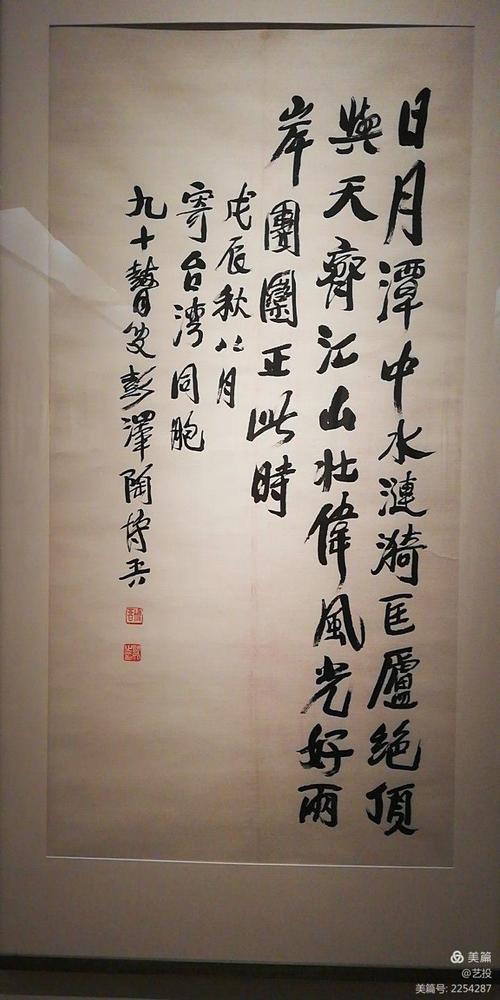 日月潭中水漣漪匡廬絕頂
與天齊江山壯偉風光好兩
岸團圞正此時
戊辰秋八月
寄台灣同胞
九十瞽叟彭澤陶博吾
美篇
@艺投
美篇号: 2254287